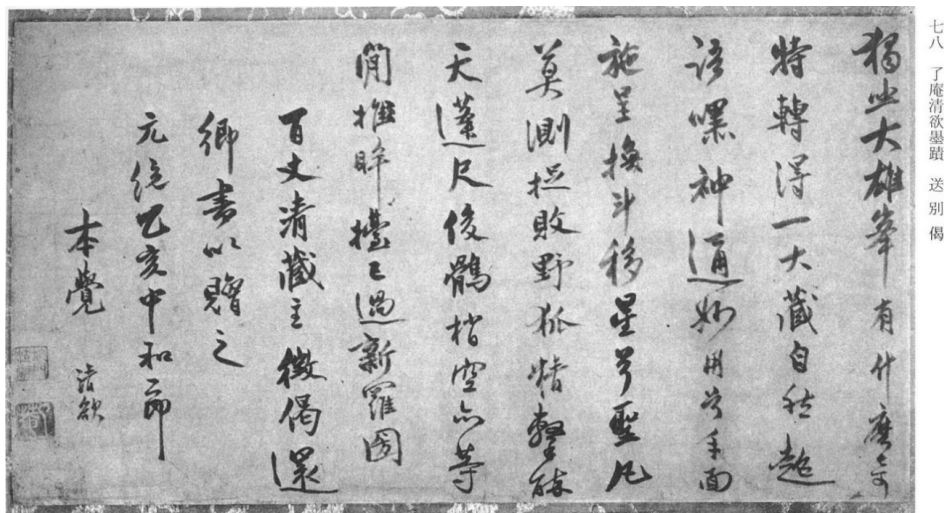 七八　了庵清欲墨蹟　送別偈
獨坐大雄峯有什麼奇
特轉得一大藏自然超
語嘿神通妙用兮手面
旋呈換斗移星兮聖凡
莫測捉敗野狐精擊碎
天蓬尺俊鶻梢空亦等
閑眸擡已過新羅國
百丈清藏主徵偈還
鄉書以贈之
元統乙亥中和節
本覺　清欲